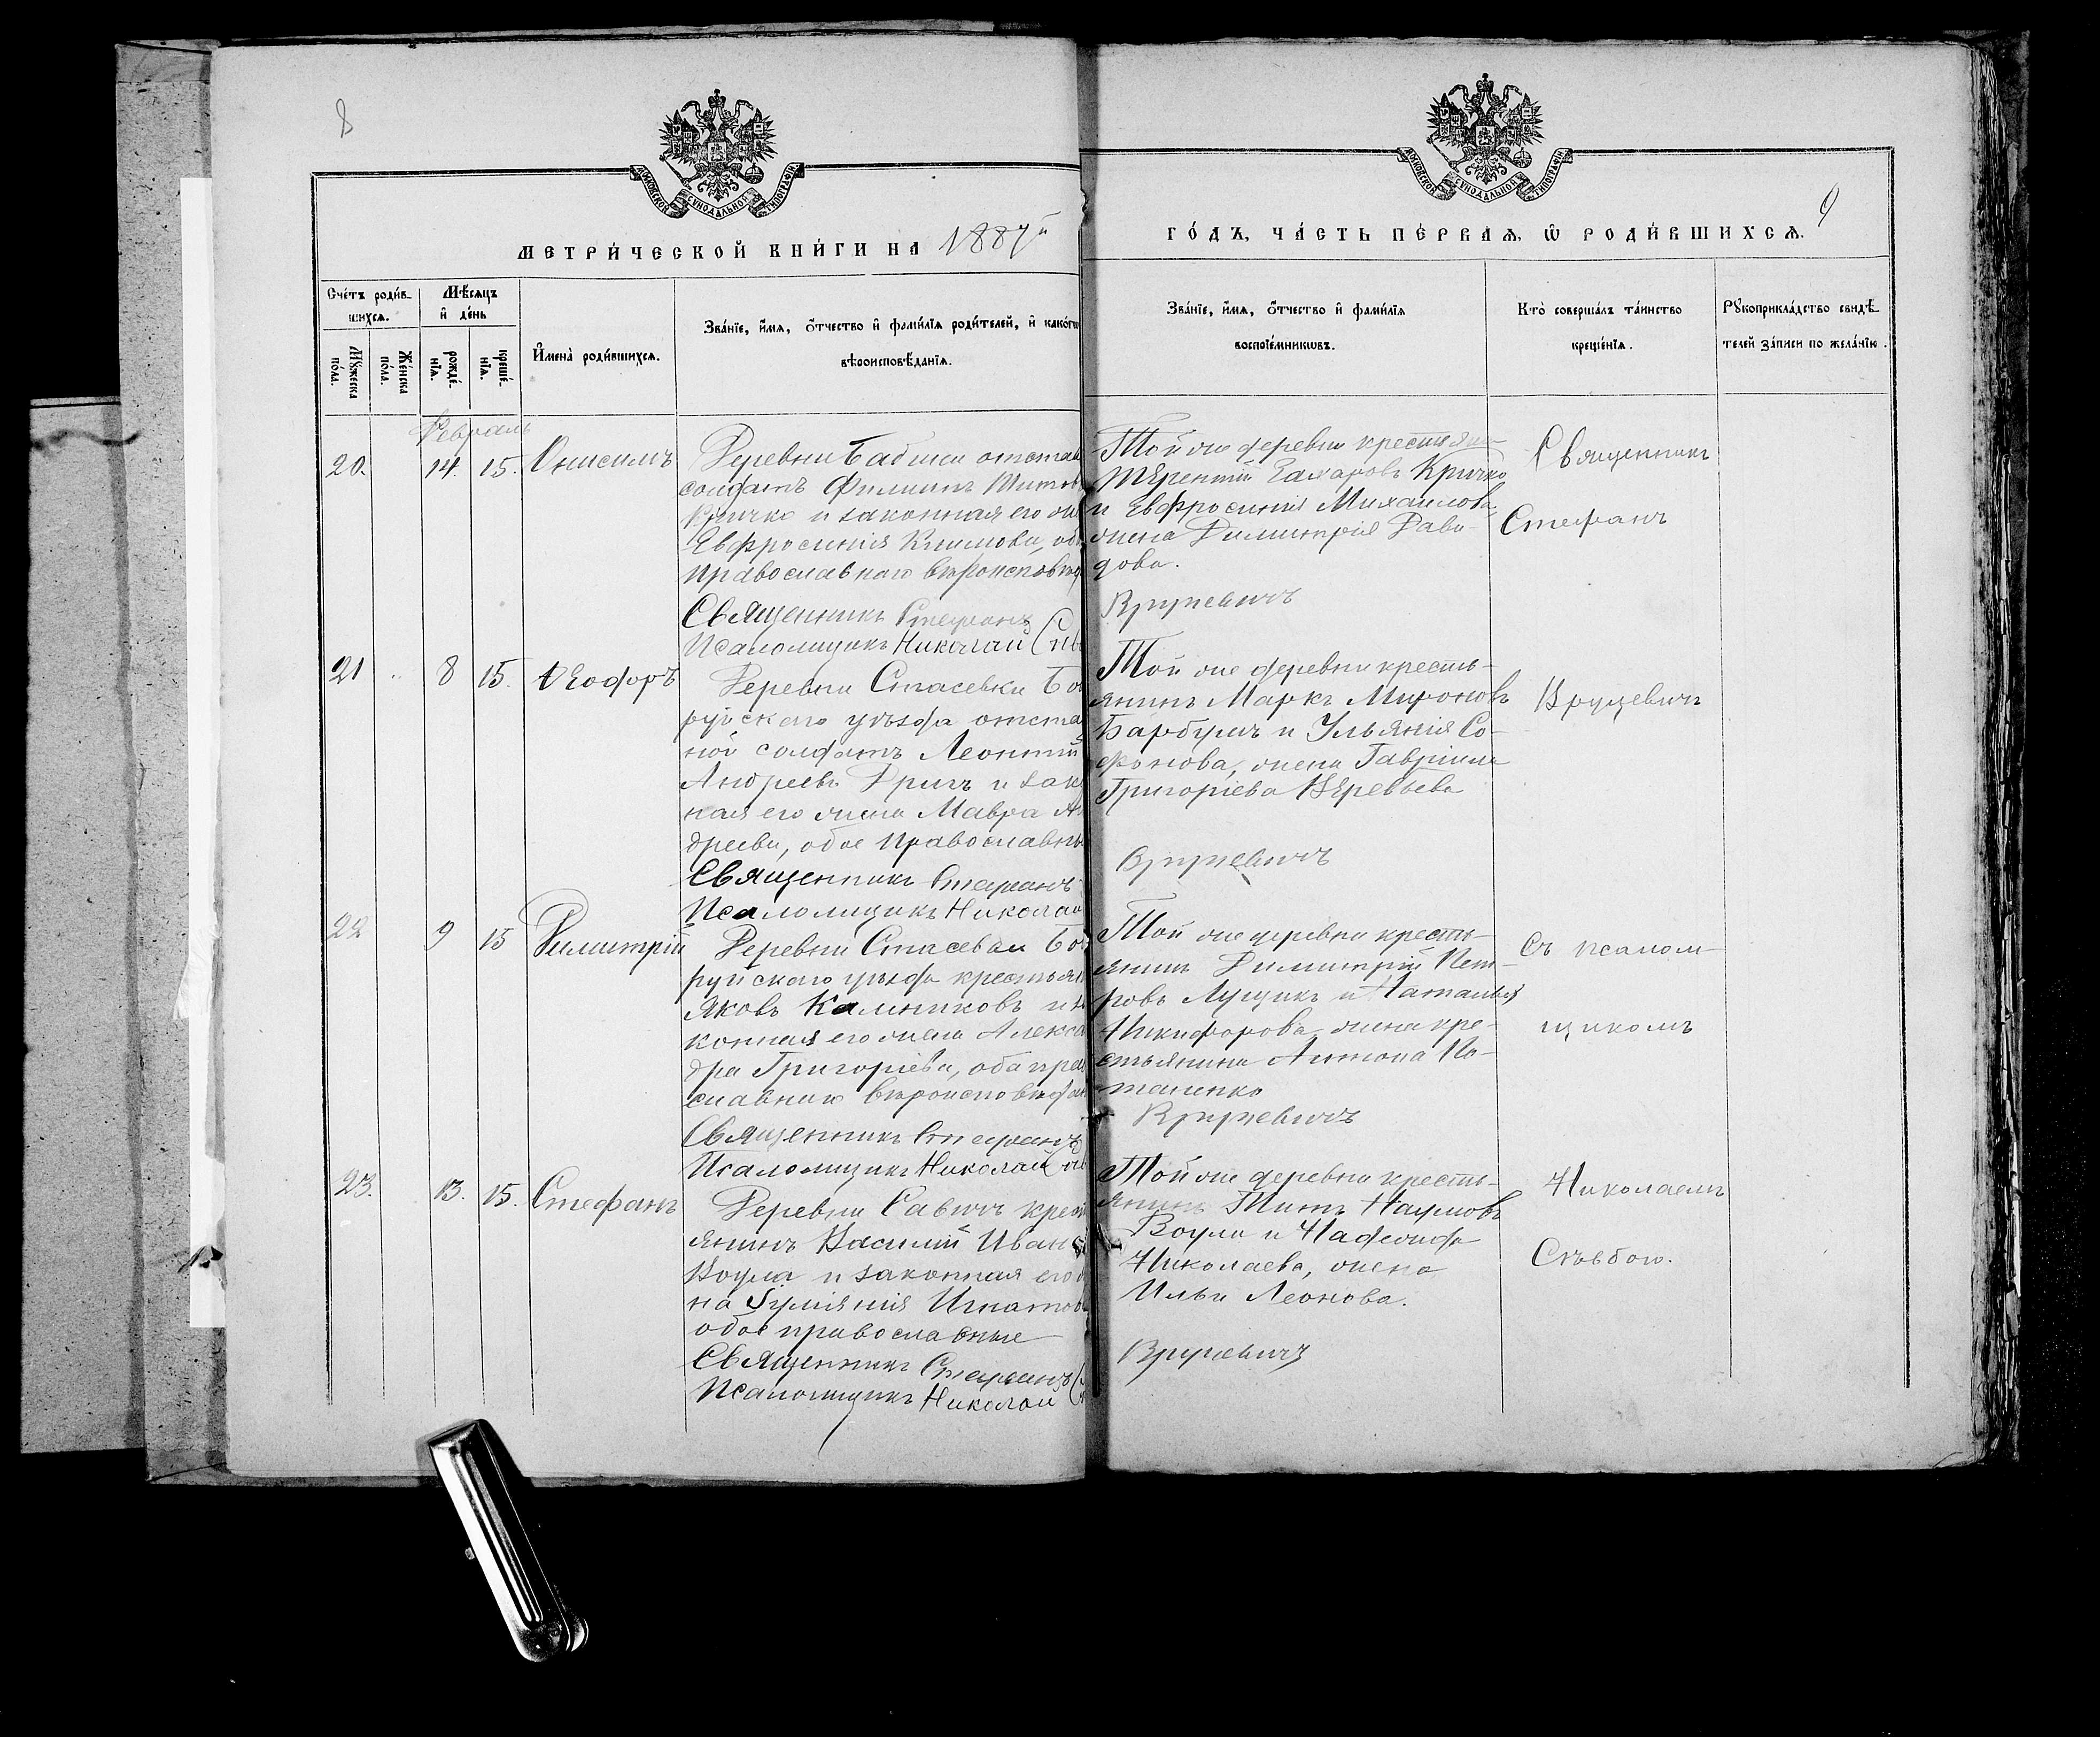 8
МОСКОВСКОЙ СѴНОДАЛЬНОЙ ТИПОГРАФІИ
МЕТРИ́ЧЕСКОЙ КНИ́ГИ НА 1887й
Сче́тъ роди́в-
шихсѧ.
Мѣ́сѧцъ
и҆ де́нь
Мꙋ́жеска
по́ла.
Же́нска
по́ла.
рожде́-
нїѧ.
креще́-
нїѧ.
И҆мена̀ роди́вшихсѧ.
Зва́нїе, и҆́мѧ, ѻ҆́тчество и҆ фами́лїѧ роди́телей, и҆ како́гѡ
вѣроисповѣ́данїѧ.
Февраль
20. 14. 15. Онисимъ
Деревни Бабичи отстав
солдатъ Филиппъ Титов
Кричко и законная его же
Евфросинія Климова, оба
православнаго вѣроисповѣд
Священникъ Стефанъ
Псаломщикъ Николай
21 8 15. Ѳеодоръ
Деревни Стасевки Бо
руйскаго уѣзда отста
ной солдатъ Леонтій
Андреевъ Дричъ и зак
ная его жена Мавра Ан
дреева, обое православны
Священникъ Стефанъ
Псаломщикъ Николай
22 9 15 Димитрій
Деревни Стасевки Боб
руйскаго уѣзда крестьян
Яковъ Калинковъ и за
конная его жена Алекса
дра Григоріева, оба пра
славнаго вѣроисповѣдан
Священникъ Стефанъ
Псаломщикъ Николай
23. 13. 15. Стефанъ
Деревни Савичъ крест
янинъ Василій Ивано
Воула и законная его
на Іуліянія Игнатов
обое православные
Священникъ Стефанъ
Псаломщикъ Николай
МОСКОВСКОЙ СѴНОДАЛЬНОЙ ТИПОГРАФІИ
9
ГО́ДЪ, ЧА́СТЬ ПЕ́РВАѦ, Ѡ҆ РОДИ́ВШИХСѦ.
Зва́нїе, и҆́мѧ, ѻ҆́тчество и҆ фами́лїѧ
воспрїе́мникѡвъ.
Кто̀ соверша́лъ та́инство
креще́нїѧ.
Рꙋкоприкла́дство свидѣ́-
телей за́писи по жела́нїю.
Той же деревни крестьяни
Терентій Захаровъ Кричко
и Евфросинія Михаилова
жена Димитрія Дави-
дова.
Вружевичъ
Той же деревни кресть-
янинъ Маркъ Мироновъ
Барбумъ и Ульянія Со-
фонова, жена Гавріила
Григоріева Веревьева
Вружевичъ
Той же деревни кресть-
янинъ Димитрій Пет-
ровъ Лущикъ и Наталья
Никифорова жена кре-
стьянина Антона По-
таненко
Вружевичъ
Той же деревни кресть-
янинъ Титъ Наумовъ
Воула и
Николаева, жена
Ильи Леонова.
Вружевичъ
Священникъ
Стефанъ
Вружевичъ
съ псалом-
щикомъ
Николаемъ